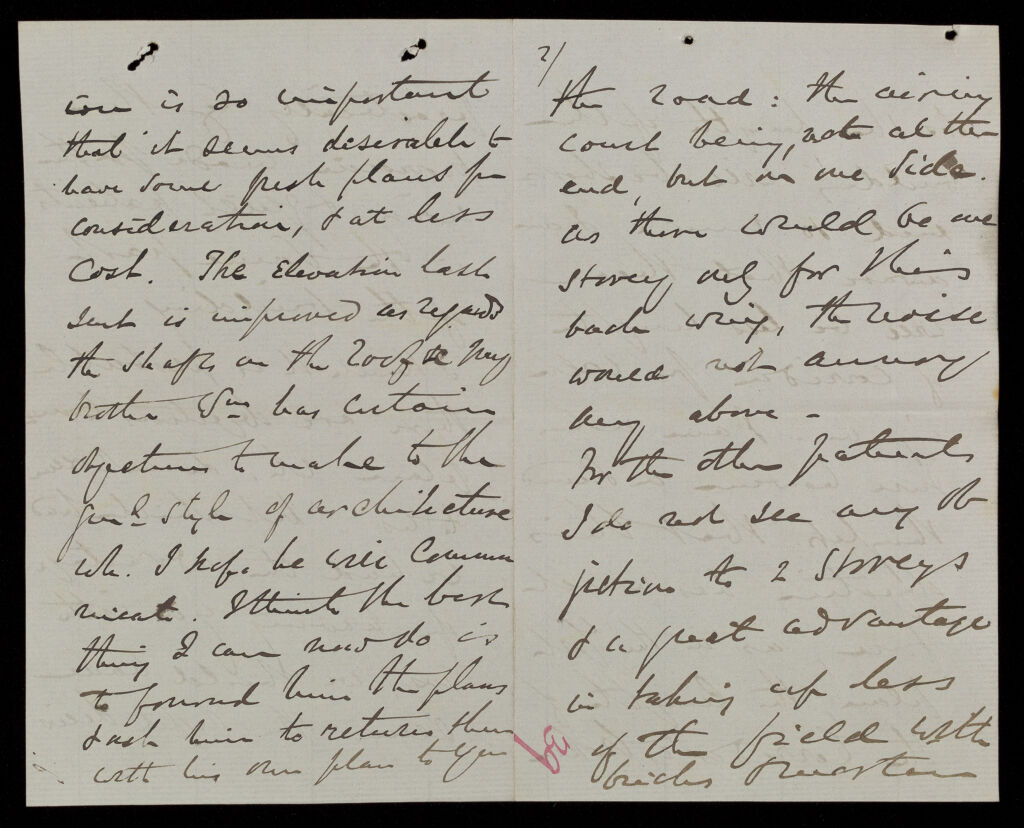 ion is so important
that it seems desirable to
have some fresh plans for
consideration, & at less
cost. The Elevation last
sent is improved as regards
the shafts on the roof &c My
brother Wm has certain
objections to make to the
genl. style of architecture
wh. I hope he will commu
nicate. I think the best
thing I can now do is
to forward him the plans
& ask him to return them
with his own plan to you
2/
the road: the airing
court being, not at the
end, but on one side.
as there would be one
storey only for this
back wing, the noise
would not annoy
any above -
For the other patients
I do not see any ob
jection to 2 storeys
& a great advantage
in taking up less
of the field with
bricks & mortar
39